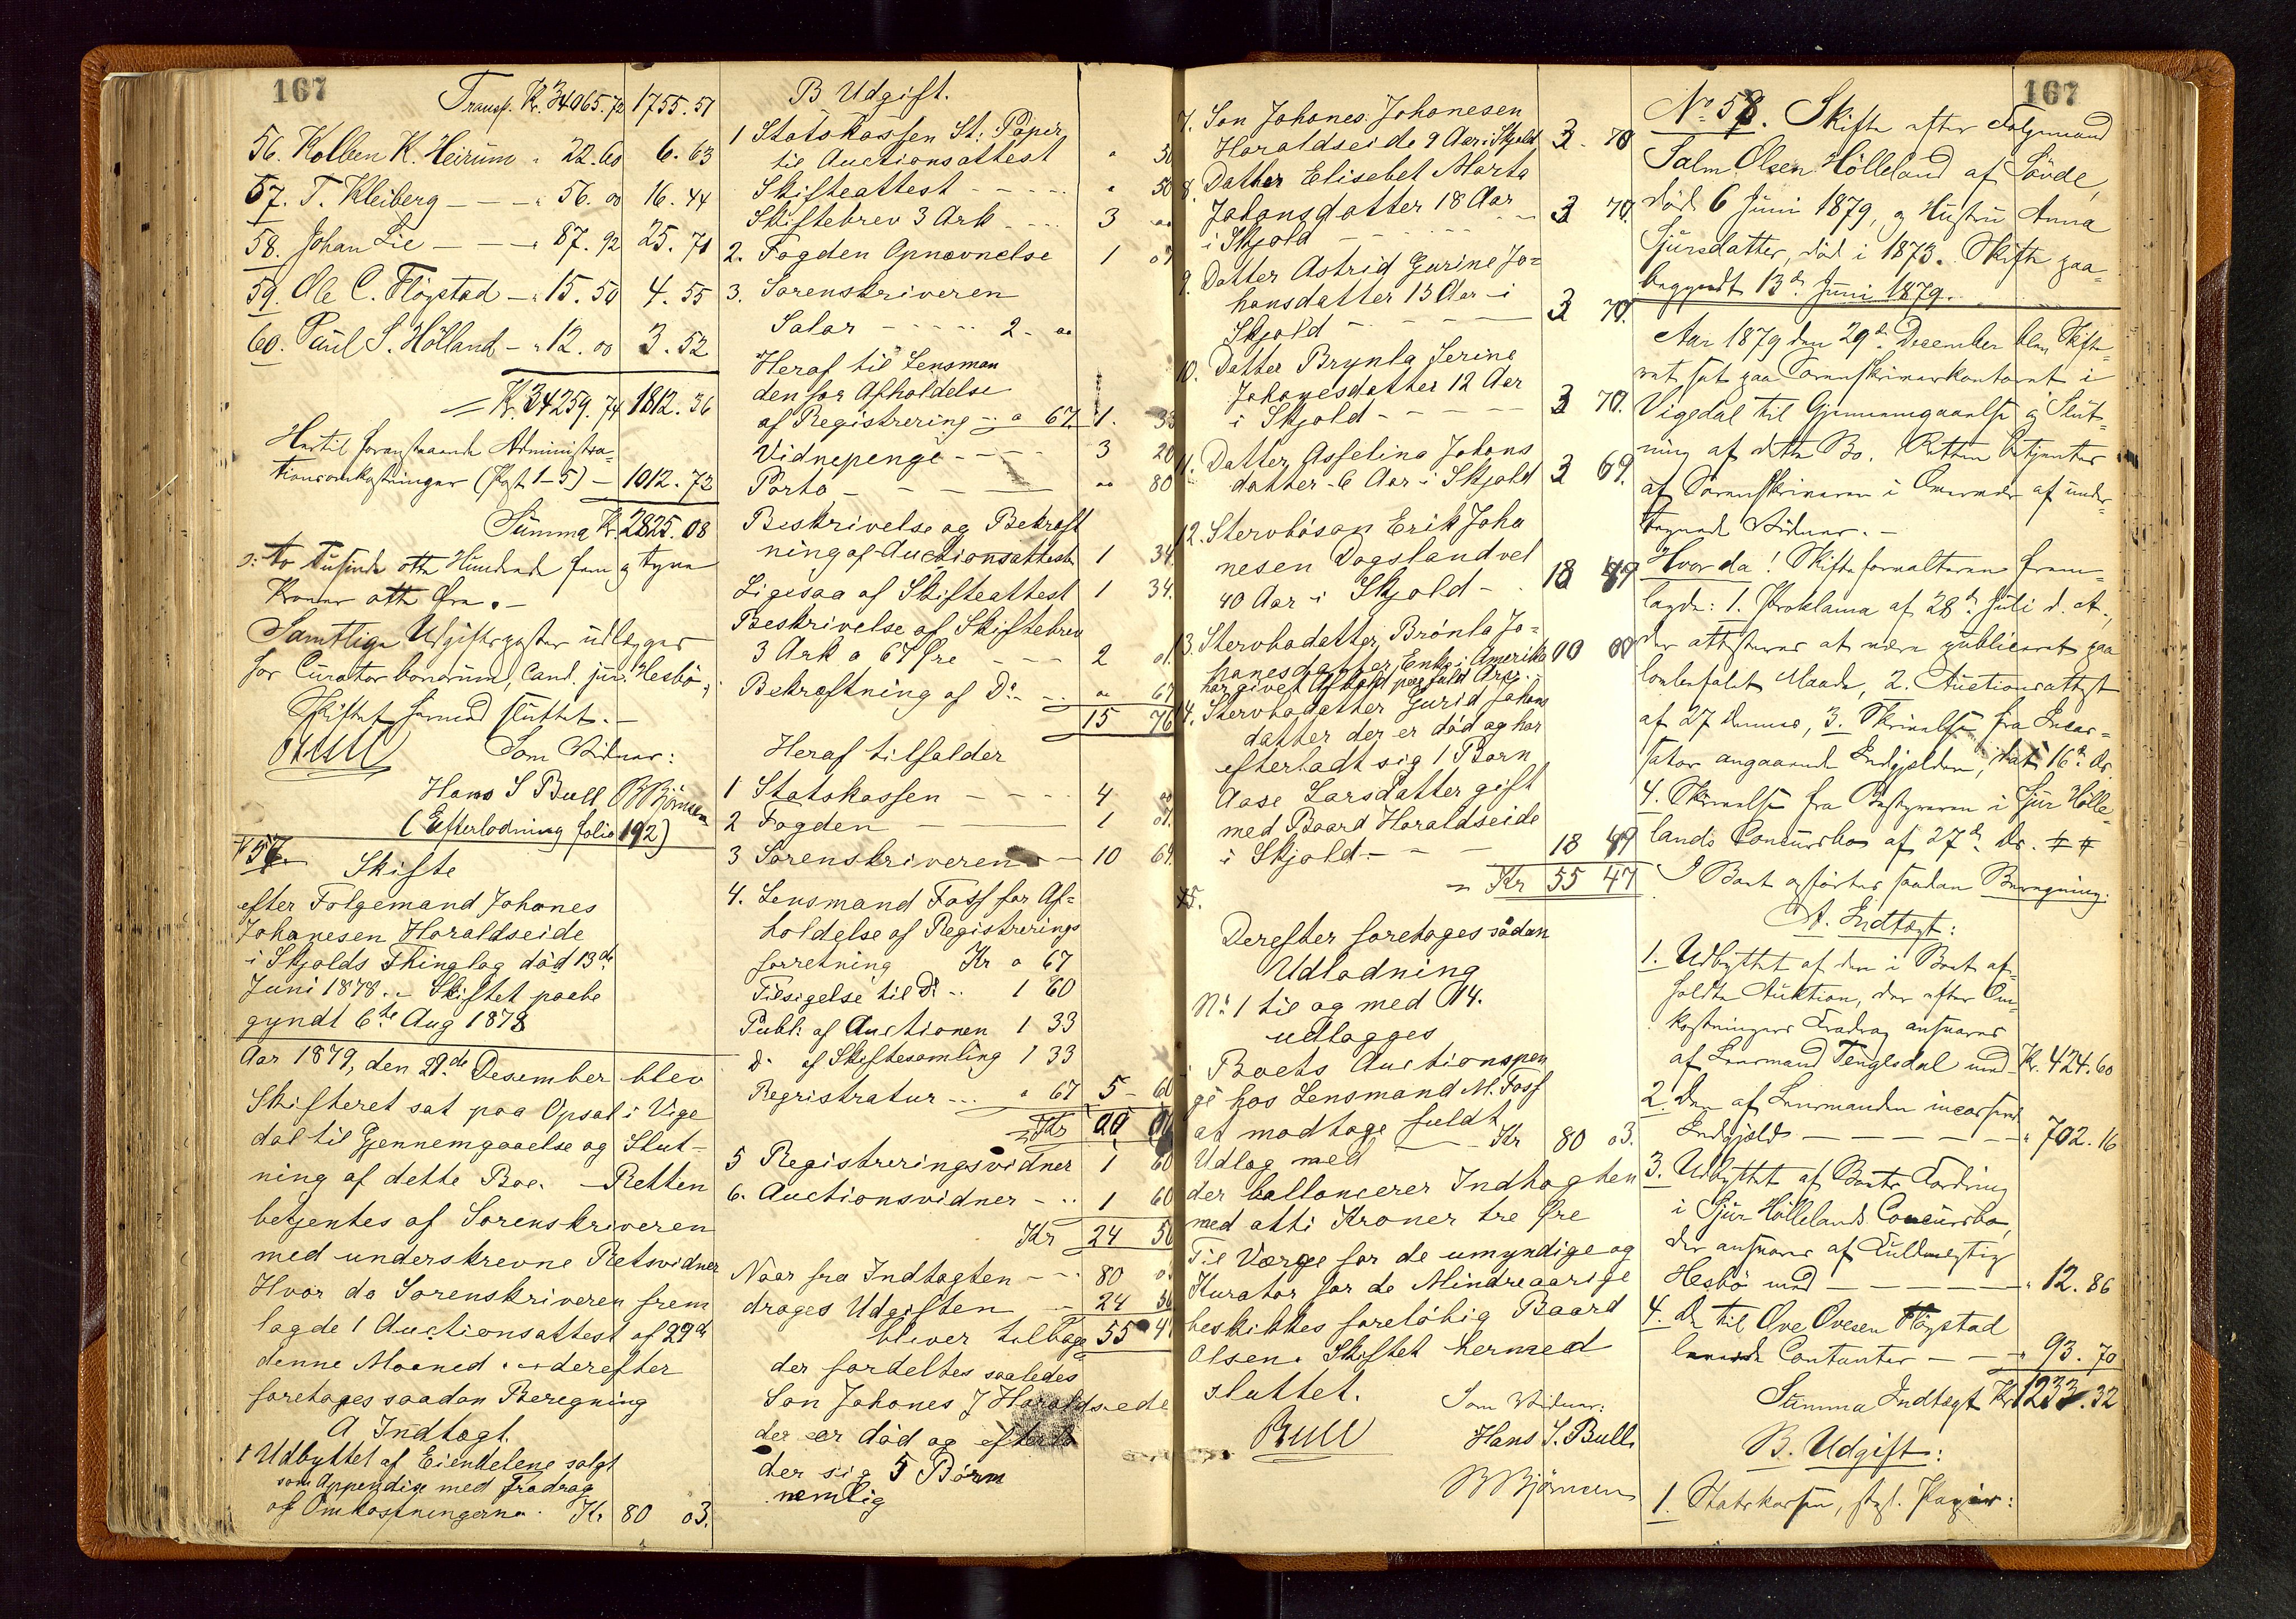 167
Transp. Kr. 34065.72 1755.51
56. Kolben K. Heirum " 22.60 6.63
57. T. Kleiberg - - - " 56.00 16.44
58. Johan Lie - - - " 87.92 25.71
59. Ole C. Flógstad - " 15.50 4.55
60. Paul S. Hólland - " 12.00 3.52
= Kr. 34259.74 1812.36
Hertil foranstaaende Administra-
tionsomkostninger (Post 1-5) - 1012.72
Summa Kr. 2825.08
ɔ: to Tusinde otte Hundrede fem og tyve
Kroner otte Øre. -
Samtlige Udgiftsposter udlægges
hos Curator bonorum, Cand. jur. Hesbó,
Skiftet hermed sluttet. -
Bull Som Vidner:
Hans S Bull B Björnsen
(Efterlodning folio 192)
№ 57. Skifte
efter Folgemand Johanes
Johanesen Haraldseide
i Skjolds Thinglag död 13de
Juni 1878. - Skiftet paabe
gyndt 6te Aug 1878
Aar 1879, den 29de Desember blev
Skifteret sat paa Opsal i Vige
dal til Gjennemgaaelse og Slut-
ning af dette Boe. - Retten
betjentes af Sorenskriveren
med underskrevne Retsvidner
Hvor da Sorenskriveren frem
lagde 1 Auctionsattest af 29de
denne Maaned. derefter
foretages saadan Beregning
A Indtægt.
1 Udbyttet af Eiendelene solgt
som Appendise med Fradrag
af Omkostningerne. Kr 80 03.
B Udgift.
1 Statskassen St: Papir
til Auctionsattest " 50
Skifteattest - - - - - " 50
Skiftebrev 3 Ark - - - - 3 "
2. Fogden Opnævnelse 1 07
3. Sorenskriveren
Salær - - - - - 2 - "
Heraf til Lensman
den for Afholdelse
af Registrering - " 67 1. 33
Vidnepenge - - - - 3 20
Porto - - - - " 80
Beskrivelse og Bekræft
ning af Auctionsattesten 1 34
Ligesaa af Skifteattest 1 34.
Beskrivelse af Skiftebrev
3 Ark a 67 Øre - - - 2 01.
Bekræftning af Do - - " 67
15 76
Heraf tilfalder
1 Statskassen - - - - 4 "
2 Fogden 1 07.
3 Sorenskriveren - - 10 69.
4. Lensmand Foss for Af=
holdelse af Registrerings
forretning Kr " 67
Tilsigelse til Do - 1 60
Publ: af Auctionen 1 33
Do af Skiftesamling 1 33
Registratur - - - " 67 5 - 60
5 Registreringsvidner 1 60
6. Auctionsvidner - - 1 60
Kr 24 56
Naar fra Indtægten - - 80 03
drages Udgiften - 24 56
bliver tilbage 55 47
der fordeltes saaledes
Son Johanes J Haraldseide
der er död og efterlo
der sig 5 Börn
nemlig
167
7. Son Johanes Johanesen
Haraldseide 9 Aar i Skjold 3 - 70
8. Datter Elisebet Marta
Johansdatter 18 Aar
i Skjold - - - - - 3 70.
9. Datter Astrid Gurine Jo=
hansdatter 15 Aar - i
Skjold - - - - - 3 70.
10. Datter Brynla Serine
Johanesdatter 12 Aar
i Skjold - - - - - 3 70.
11. Datter Asseline Johans
datter - 6 Aar i Skjold 3 69.
12. Stervbósön Erik Joha
nesen Dagsland vel
40 Aar i Skjold - 18 49
13. Stervbodatter Brónla Jo=
hanesdatter, Enke i Amerika 00 00
har givet Afkald paa fuld Arv.
14. Stervbodatter Gurid Johans
datter der er död og har
efterladt sig 1 Barn
Aase Larsdatter gift
med Baard Haraldseide
i Skjold - - - 18 49
= Kr 55 47
Derefter foretages sådan
Udlodning
№ 1 til og med 14.
udlægges
i Boets Auctionspen
ge hos Lensmand M. Foss
at modtage fuldt
Udlæg med - Kr 80 03.
der ballancerer Indtægten
med otti Kroner tre Øre
Til Værge for de umyndige og
Kurator for de Mindreaarige
beskikkes forelöbig Baard
Olsen. Skiftet hermed
sluttet.
Som Vidner:
Bull Hans S. Bull.
B Björnsen
№ 58. Skifte efter Folgemand
Salm. Olsen Hölleland af Sövde,
död 6 Juni 1879, og Hustru Anna
Sjursdatter, död i 1873. Skifte paa-
begyndt 13de Juni 1879.
Aar 1879 den 29de December blev Skifte-
ret sat paa Sorenskriverkontoret i
Vigedal til Gjennemgaaelse og Slut-
ning af dette Bo. Retten betjentes
af Sorenskriveren i Overvær af under-
tegnede Vidner. -
Hvor da! Skifteforvalteren frem-
lagde: 1. Proklama af 28de Juli d. A.,
der attesteres at være publiceret paa
lovbefalet Maade, 2. Auctionsattest
af 27 dennes, 3. Skrivelse fra Incas-
sator angaaende Indgjelden, dat. 16de Ds.
4. Skrivelse fra Bestyreren i Sjur Hölle-
lands Concursbo af 27de Ds.
I Boet opförtes saadan Beregning:
A. Indtægt:
1. Udbyttet af den i Boet af-
holdte Auktion, der efter Om-
kostningers Fradrag ansvares
af Lensmand Tengesdal med Kr. 424.60
2. Den af Lensmanden incasserede
Indgjæld - - - - - - " 702.16
3. Udbyttet af Boets Fordring
i Sjur Höllelands Concursbo,
der ansvares af Fuldmægtig
Hesbö med - - - - " 12.86
4. De til Ove Ovesen Flógstad
laante Contanter - - - " 93.70
Summa Indtægt Kr. 1233.32
B. Udgift:
1. Statskassen, stpl. Papir: